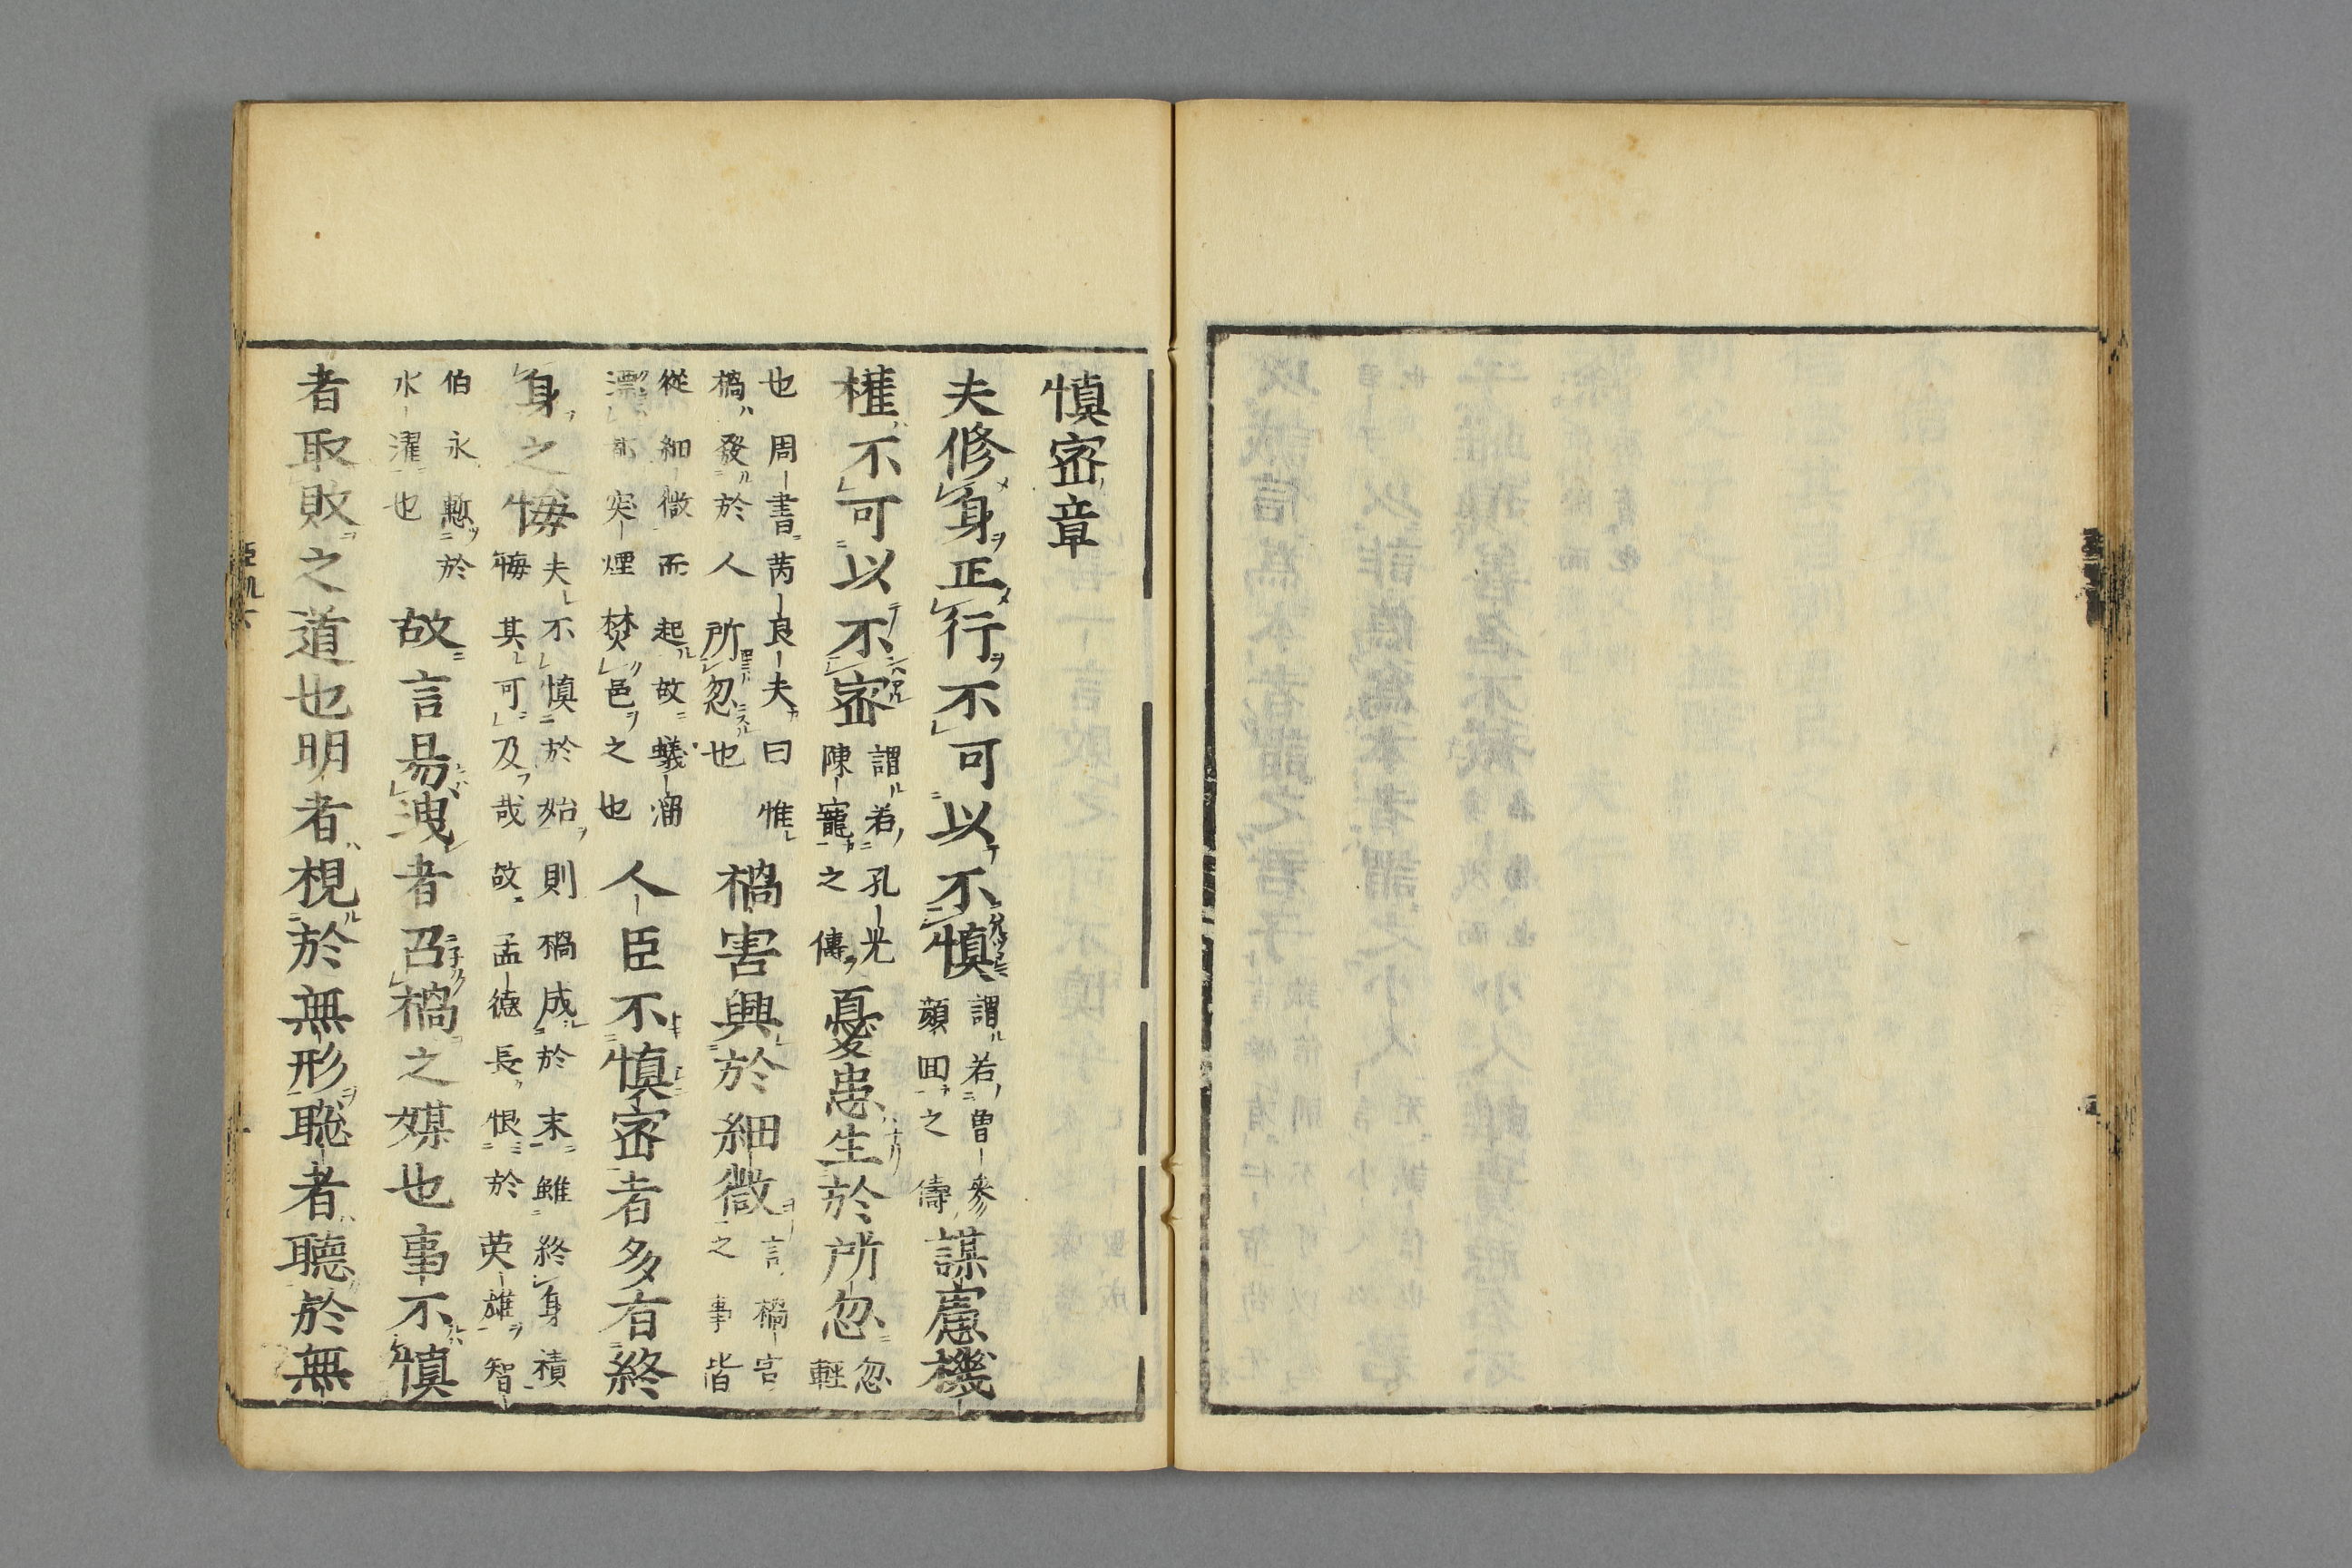 慎密章
夫修身正行不可以不慎謂若曽參顔囬之儔謀慮機
權不可以不密謂若孔光陳寵之儔憂患生於所忽忽輕
也周書芮良夫曰惟禍發於人所忽也禍害興於細微言禍害之事皆
從細微而起故蟻溜漂突煙焚邑之也人臣不慎密者多有終
身之悔夫不慎於始悔其可及哉則禍成於末雖終身積故孟德長恨於英雄智
伯永慙於水濯也故言易洩者召禍之媒也事不慎
者取敗之道也明者視於無形聡者聽於無